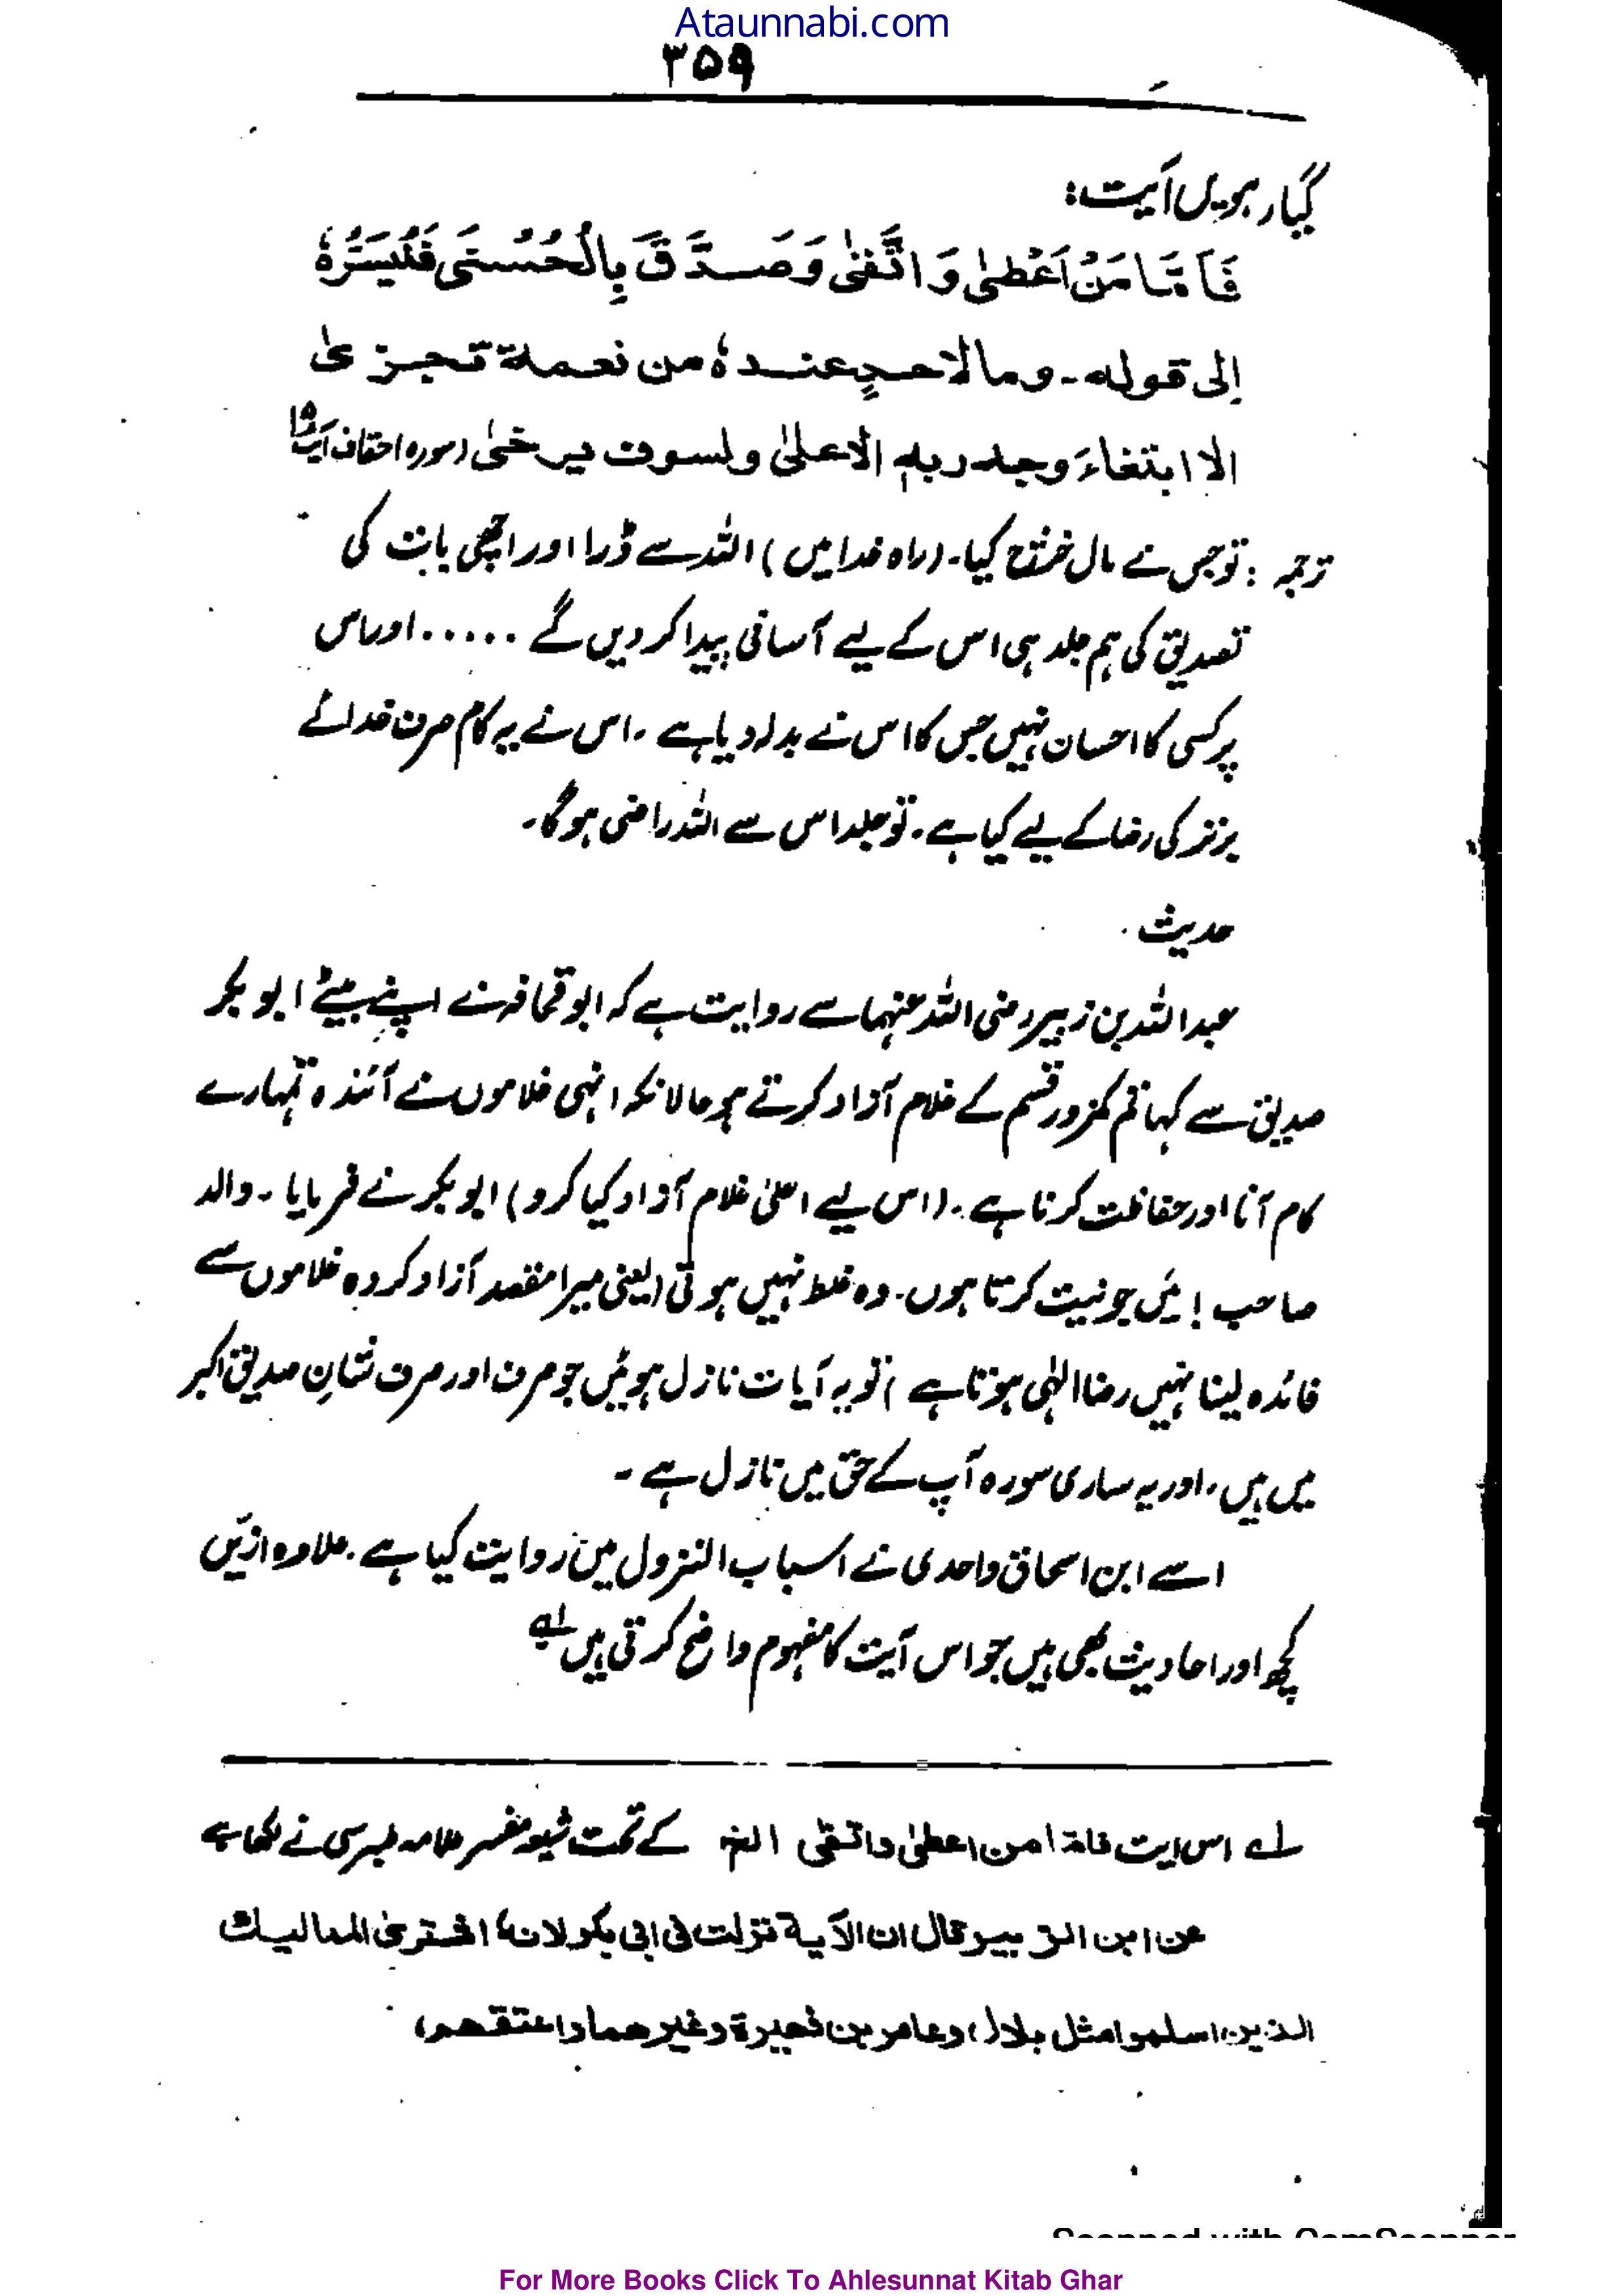 Ataunnabi.com
۳۵۹
گیارہویں آیت:
فَاَمَّا مَنْ اَعْطٰی وَ اتَّقٰی وَ صَدَّقَ بِالْحُسْنٰی فَلَیَسِّرُہٗ
اِلی قولہ۔ وما لاحدٍ عندہٗ من نعمۃ تجزیٰ
الا ابتغاءَ وجہ ربہٖ الاعلیٰ ولسوف یرضیٰ (سورہ احقاف آیت ۱۵
ترجمہ : تو جس نے مال خرچ کیا۔ (راہ خدا میں) اللہ سے ڈرا اور اچھی بات کی
تصدیق کی ہم جلد ہی اس کے لیے آسانی پیدا کر دیں گے ..... اور اس
پر کسی کا احسان نہیں جس کا اس نے بدلہ دیا ہے ۔ اس نے یہ کام صرف خدائے
برتر کی رضا کے لیے کیا ہے۔ تو جلد اس سے اللہ راضی ہوگا۔
حدیث
عبداللہ بن زبیر رضی اللہ عنہما سے روایت ہے کہ ابو قحافہ نے اپنے بیٹے ابو بکر
صدیق سے کہا تم کمزور قسم کے غلام آزاد کرتے ہو حالانکہ انہی غلاموں نے آئندہ تمہارے
کام آنا اور حفاظت کرنا ہے۔ (اس لیے اعلیٰ غلام آزاد کیا کرو) ابو بکر نے فرمایا ۔ والد
صاحب! میں جو نیت کرتا ہوں۔ وہ غلط نہیں ہوتی (یعنی میرا مقصد آزاد کردہ غلاموں سے
فائدہ لینا نہیں رضا الٰہی ہوتا ہے ) تو یہ آیات نازل ہوئیں جو صرف اور صرف شانِ صدیق اکبر
میں ہیں۔ اور یہ ساری سورہ آپ کے حق میں نازل ہے ۔
اسے ابن اسحاق واحدی نے اسباب النزول میں روایت کیا ہے۔ علاوہ ازیں
کچھ اور احادیث بھی ہیں جو اس آیت کا مفہوم واضح کرتی ہیں لے
لے اس ایت فاما من اعطیٰ واتقی الخ کے تحت شیعہ مفسر علامہ طبرسی نے لکھا ہے
عن ابن الزبیر قال ان الآیۃ نزلت فی ابی بکر لانہٗ اشتریٰ الممالیک
الذین اسلموا مثل بلال، وعامر بن فہیرۃ وغیرھما واعتقھم،
For More Books Click To Ahlesunnat Kitab Ghar